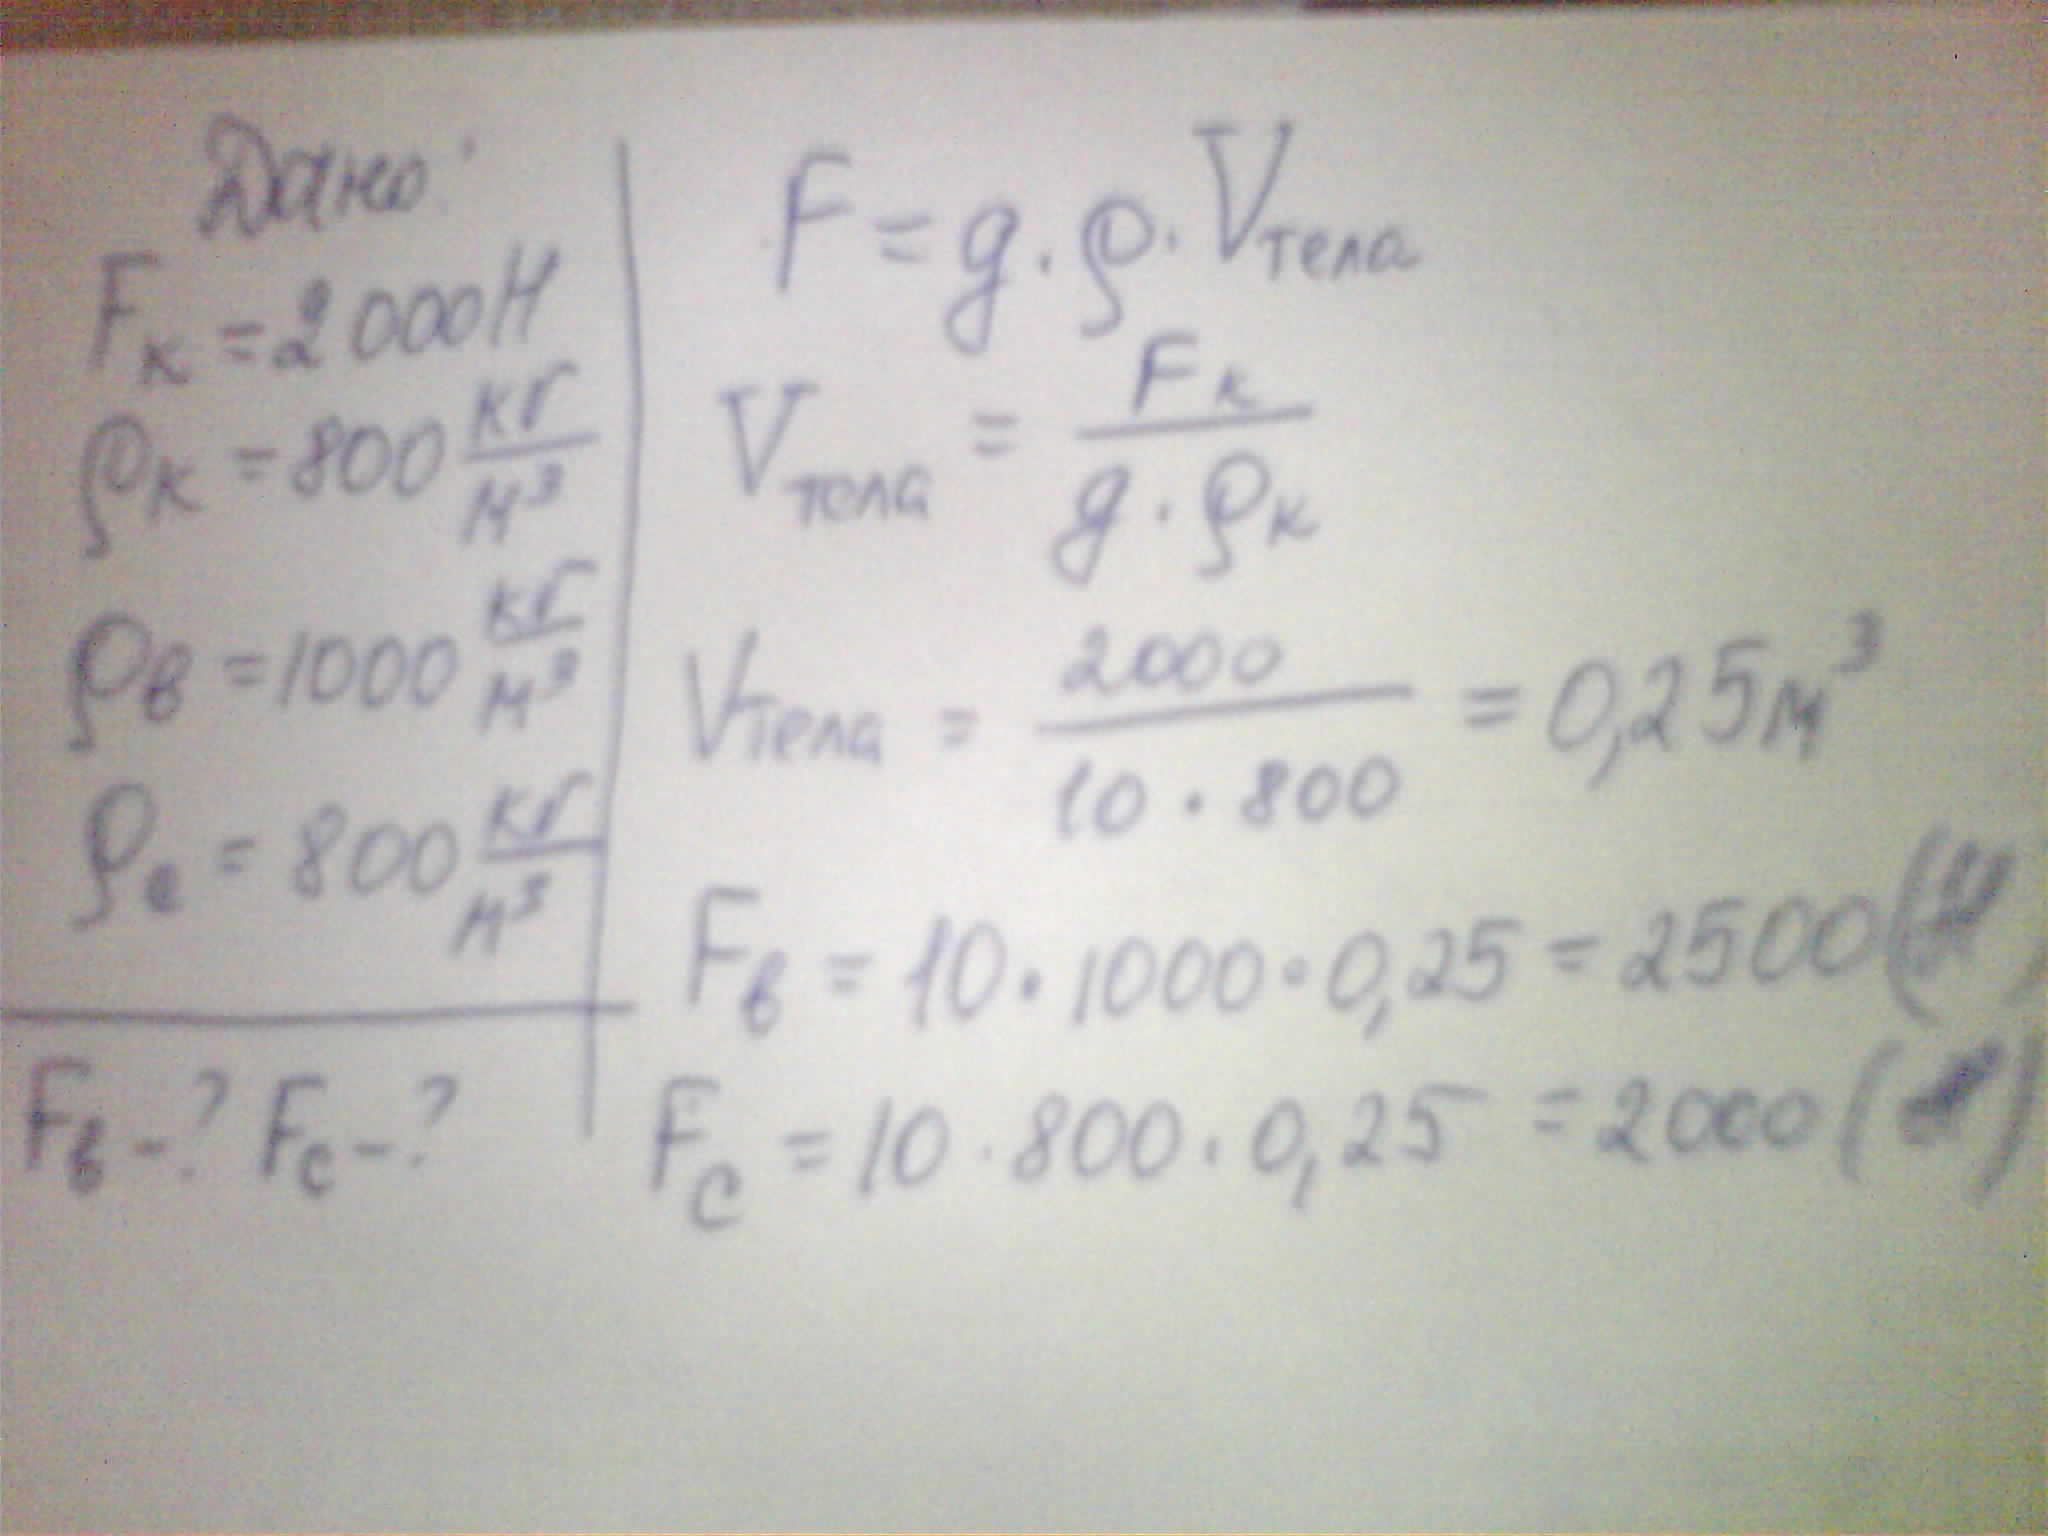 Дано:
Fк = 2000Н
ρк = 800 кг/м³
ρв = 1000 кг/м³
ρс = 800 кг/м³
Fв - ? Fс - ?
F = g · ρ · Vтела
Vтела = Fк / g · ρк
Vтела = 2000 / 10 · 800 = 0,25 м³
Fв = 10 · 1000 · 0,25 = 2500 (Н)
Fс = 10 · 800 · 0,25 = 2000 (Н)